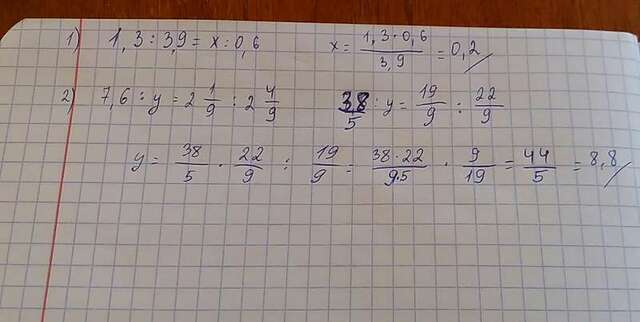 1) 1,3 : 3,9 = x : 0,6 x = \frac{1,3 \cdot 0,6}{3,9} = 0,2
2) 7,6 : y = 2\frac{1}{9} : 2\frac{4}{9} \frac{38}{5} : y = \frac{19}{9} : \frac{22}{9}
y = \frac{38}{5} \cdot \frac{22}{9} : \frac{19}{9} = \frac{38 \cdot 22}{9 \cdot 5} \cdot \frac{9}{19} = \frac{44}{5} = 8,8